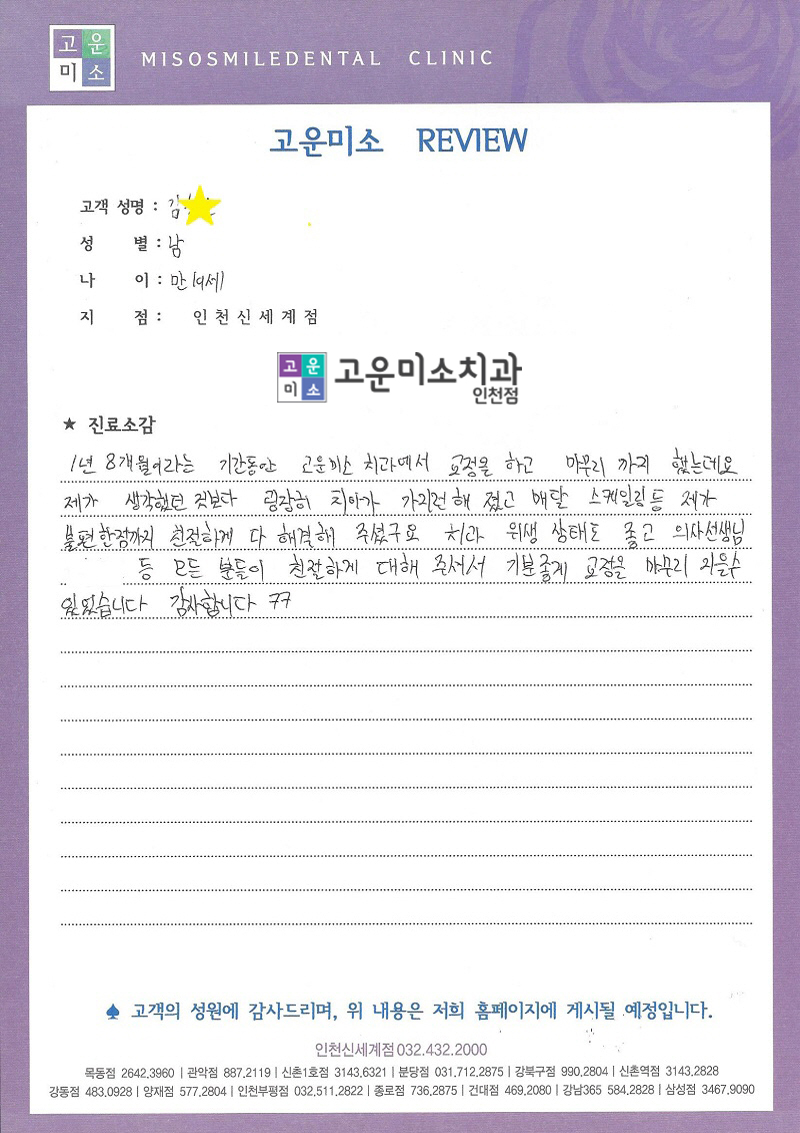 고운
미소
MISOSMILEDENTAL CLINIC
고운미소 REVIEW
고객 성명 : 김
성 별 : 남
나 이 : 만 19세
지 점 : 인천신세계점
고운
미소
고운미소치과
인천점
★ 진료소감
1년 8개월이라는 기간동안 고운미소 치과에서 교정을 하고 마무리 까지 했는데요
제가 생각했던 것보다 굉장히 치아가 가지런 해 졌고 매달 스케일링 등 제가
불편한점까지 친절하게 다 해결해 주셨구요 치과 위생 상태도 좋고 의사선생님
등 모든 분들이 친절하게 대해 주셔서 기분좋게 교정을 마무리 지을수
있었습니다 감사합니다 ㅋㅋ
♠ 고객의 성원에 감사드리며, 위 내용은 저희 홈페이지에 게시될 예정입니다.
인천신세계점 032.432.2000
목동점 2642.3960 | 관악점 887.2119 | 신촌1호점 3143.6321 | 분당점 031.712.2875 | 강북구점 990.2804 | 신촌역점 3143.2828
강동점 483.0928 | 양재점 577.2804 | 인천부평점 032.511.2822 | 종로점 736.2875 | 건대점 469.2080 | 강남365 584.2828 | 삼성점 3467.9090